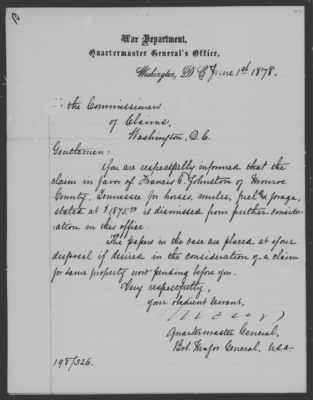 War Department,
Quartermaster General's Office,
Washington, D C June 1st 1878.
the Commissioners
of Claims,
Washington, D.C.
Gentlemen:
You are respectfully informed that the
claim in favor of Francis F. Johnston of Monroe
County, Tennessee for horses, mules, fuel & forage,
stated at $1875.00 is dismissed from further conside-
ration in this office.
The papers in the case are placed at your
disposal if desired in the consideration of a claim
for same property now pending before you.
Very respectfully,
your obedient servant,
Quartermaster General,
Bvt. Major General, U.S.A.
198/326.